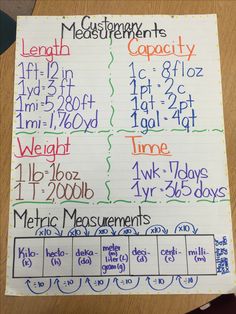 Customary
Measurements
Length
1ft = 12in
1yd = 3ft
1mi = 5,280ft
1mi = 1,760yd
Capacity
1c = 8floz
1pt = 2c
1qt = 2pt
1gal = 4qt
Weight
1lb = 16oz
1T = 2,000lb
Time
1wk = 7days
1yr = 365days
Metric Measurements
x10 x10 x10 x10 x10 x10
Kilo- (K) hecto- (h) deka- (da) meter (m) liter (L) gram (g) deci- (d) centi- (c) milli- (m)
÷10 ÷10 ÷10 ÷10 ÷10 ÷10